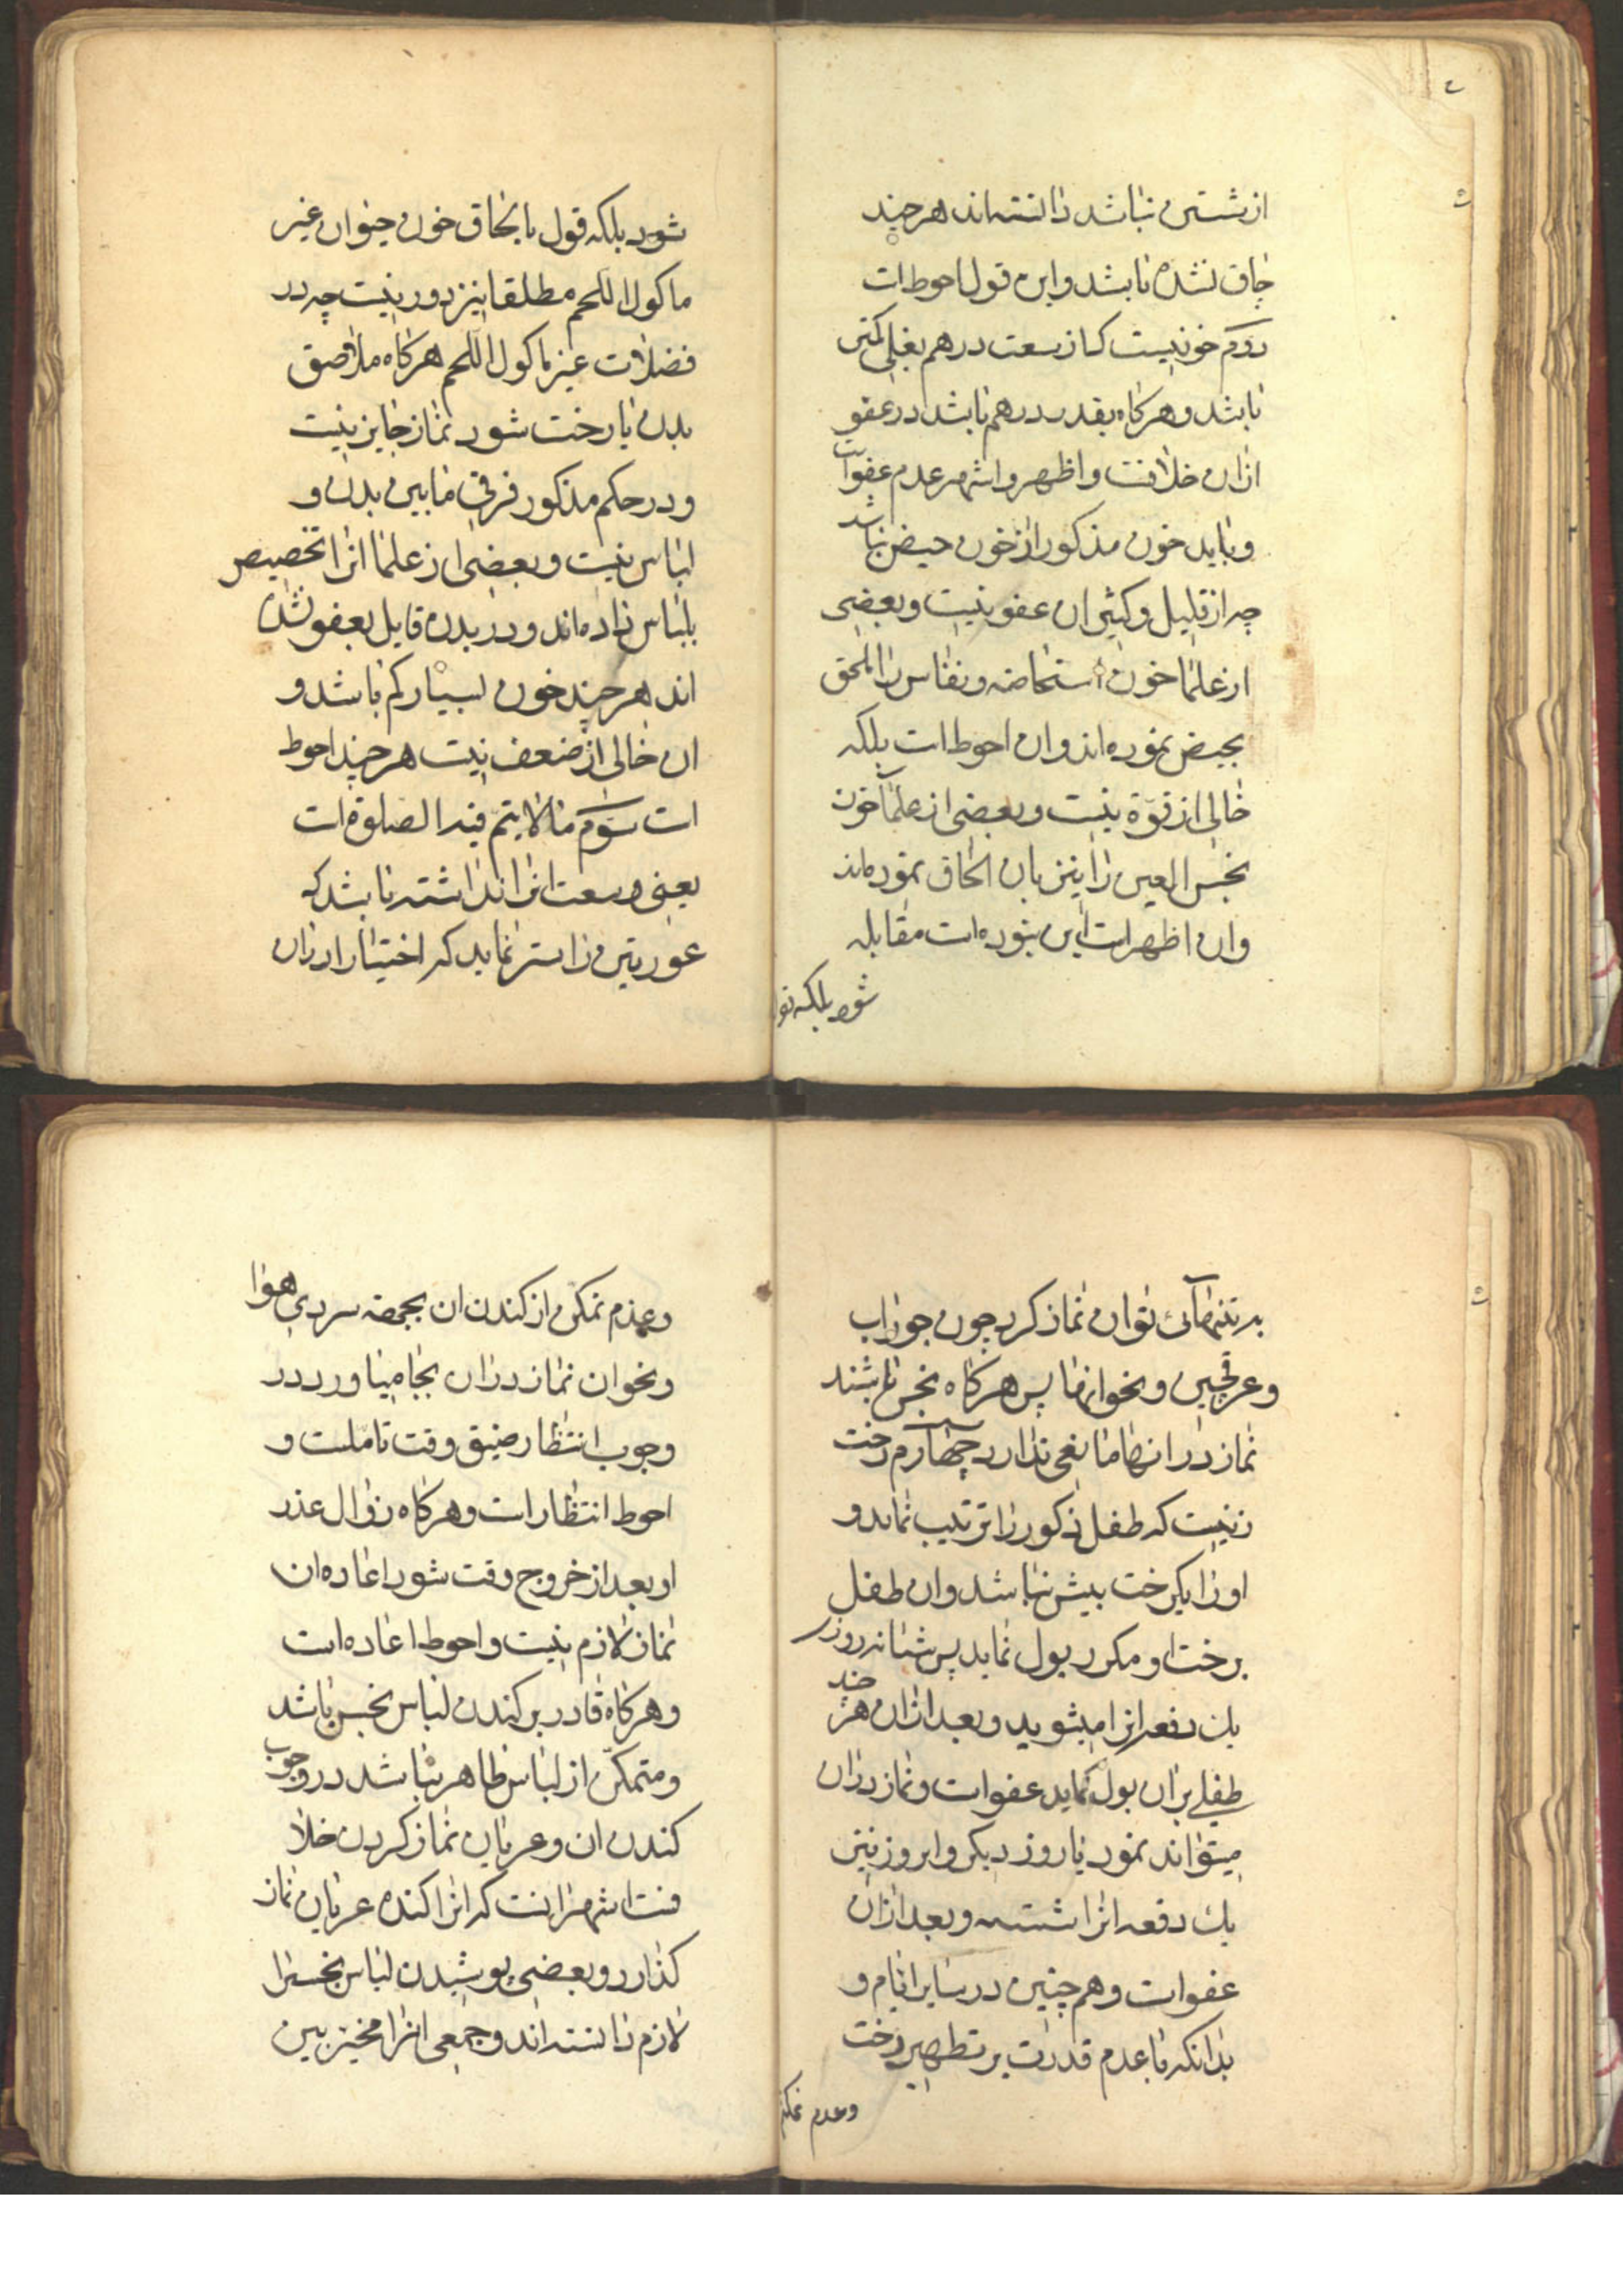 از شستن نباشد دانسته‌اند هر چند
چاق نشده باشد و این قول احوط است
دویم خونیست که از سعت درهم بغلی کمتر
باشد و هرگاه بقدر درهم باشد در عفو
ازان خلافست و اظهر و اشهر عدم عفو است
و باید خون مذکور از خون حیض نباشد
چه از قلیل و کثیر ان عفو نیست و بعضی
از علما خون استحاضه و نفاس را ملحق
بحیض نموده‌اند و ان احوط است بلکه
خالی از قوّة نیست و بعضی از علما خون
نجس العین را نیز بان الحاق نموده‌اند
و ان اظهر است این بنوده است مقابله
شود بلکه قو
شود بلکه قول بالحاق خون حیوان غیر
ماکول اللحم مطلقا نیز دور نیست چه در
فضلات غیر ماکول اللحم هرگاه ملاصق
بدن یا رخت شود نماز جایز نیست
و در حکم مذکور فرقی مابین بدن و
لباس نیست و بعضی از علما انرا تخصیص
بلباس داده‌اند و در بدن قایل بعفو نشده
اند هر چند خون بسیار کم باشد و
ان خالی از ضعف نیست هر چند احوط
است سوّم ما لا یتم فیه الصلوة است
یعنی وسعت انرا نداشته باشد که
عورتین را ستر نماید که اختیارا دران
به تنهائی توان نماز کرد چون جوراب
و عرقچین و نحو انها پس هرگاه نجس باشند
نماز در انها مانعی ندارد چهارم رخت
زنیست که طفل ذکور را تربیت نماید و
او را یکرخت بیش نباشد و ان طفل
برخت او مکرر بول نماید پس شبانه روزی
یک دفعه انرا میشوید و بعد ازان هر چند
طفلی بران بول نماید عفو است و نماز دران
میتواند نمود تا روز دیگر و انروز نیز
یک دفعه انرا شسته و بعد ازان
عفو است و هم چنین در سایر ایام و
بدانکه با عدم قدرت بر تطهیر رخت
و عدم تمکن
و عدم تمکن از کندن ان بجهة سردی هوا
و نحو ان نماز دران بجا میاورد در
وجوب انتظار ضیق وقت تاملست و
احوط انتظار است و هرگاه زوال عذر
او بعد از خروج وقت شود اعاده ان
نماز لازم نیست و احوط اعاده است
و هرگاه قادر بر کندن لباس نجس باشد
و متمکن از لباس طاهر نباشد در وجوب
کندن ان و عریان نماز کردن خلا
فست اشهر انست که انرا کنده عریان نماز
گذارد و بعضی پوشیدن لباس نجس را
لازم دانسته‌اند و جمعی انرا مخیّر بین